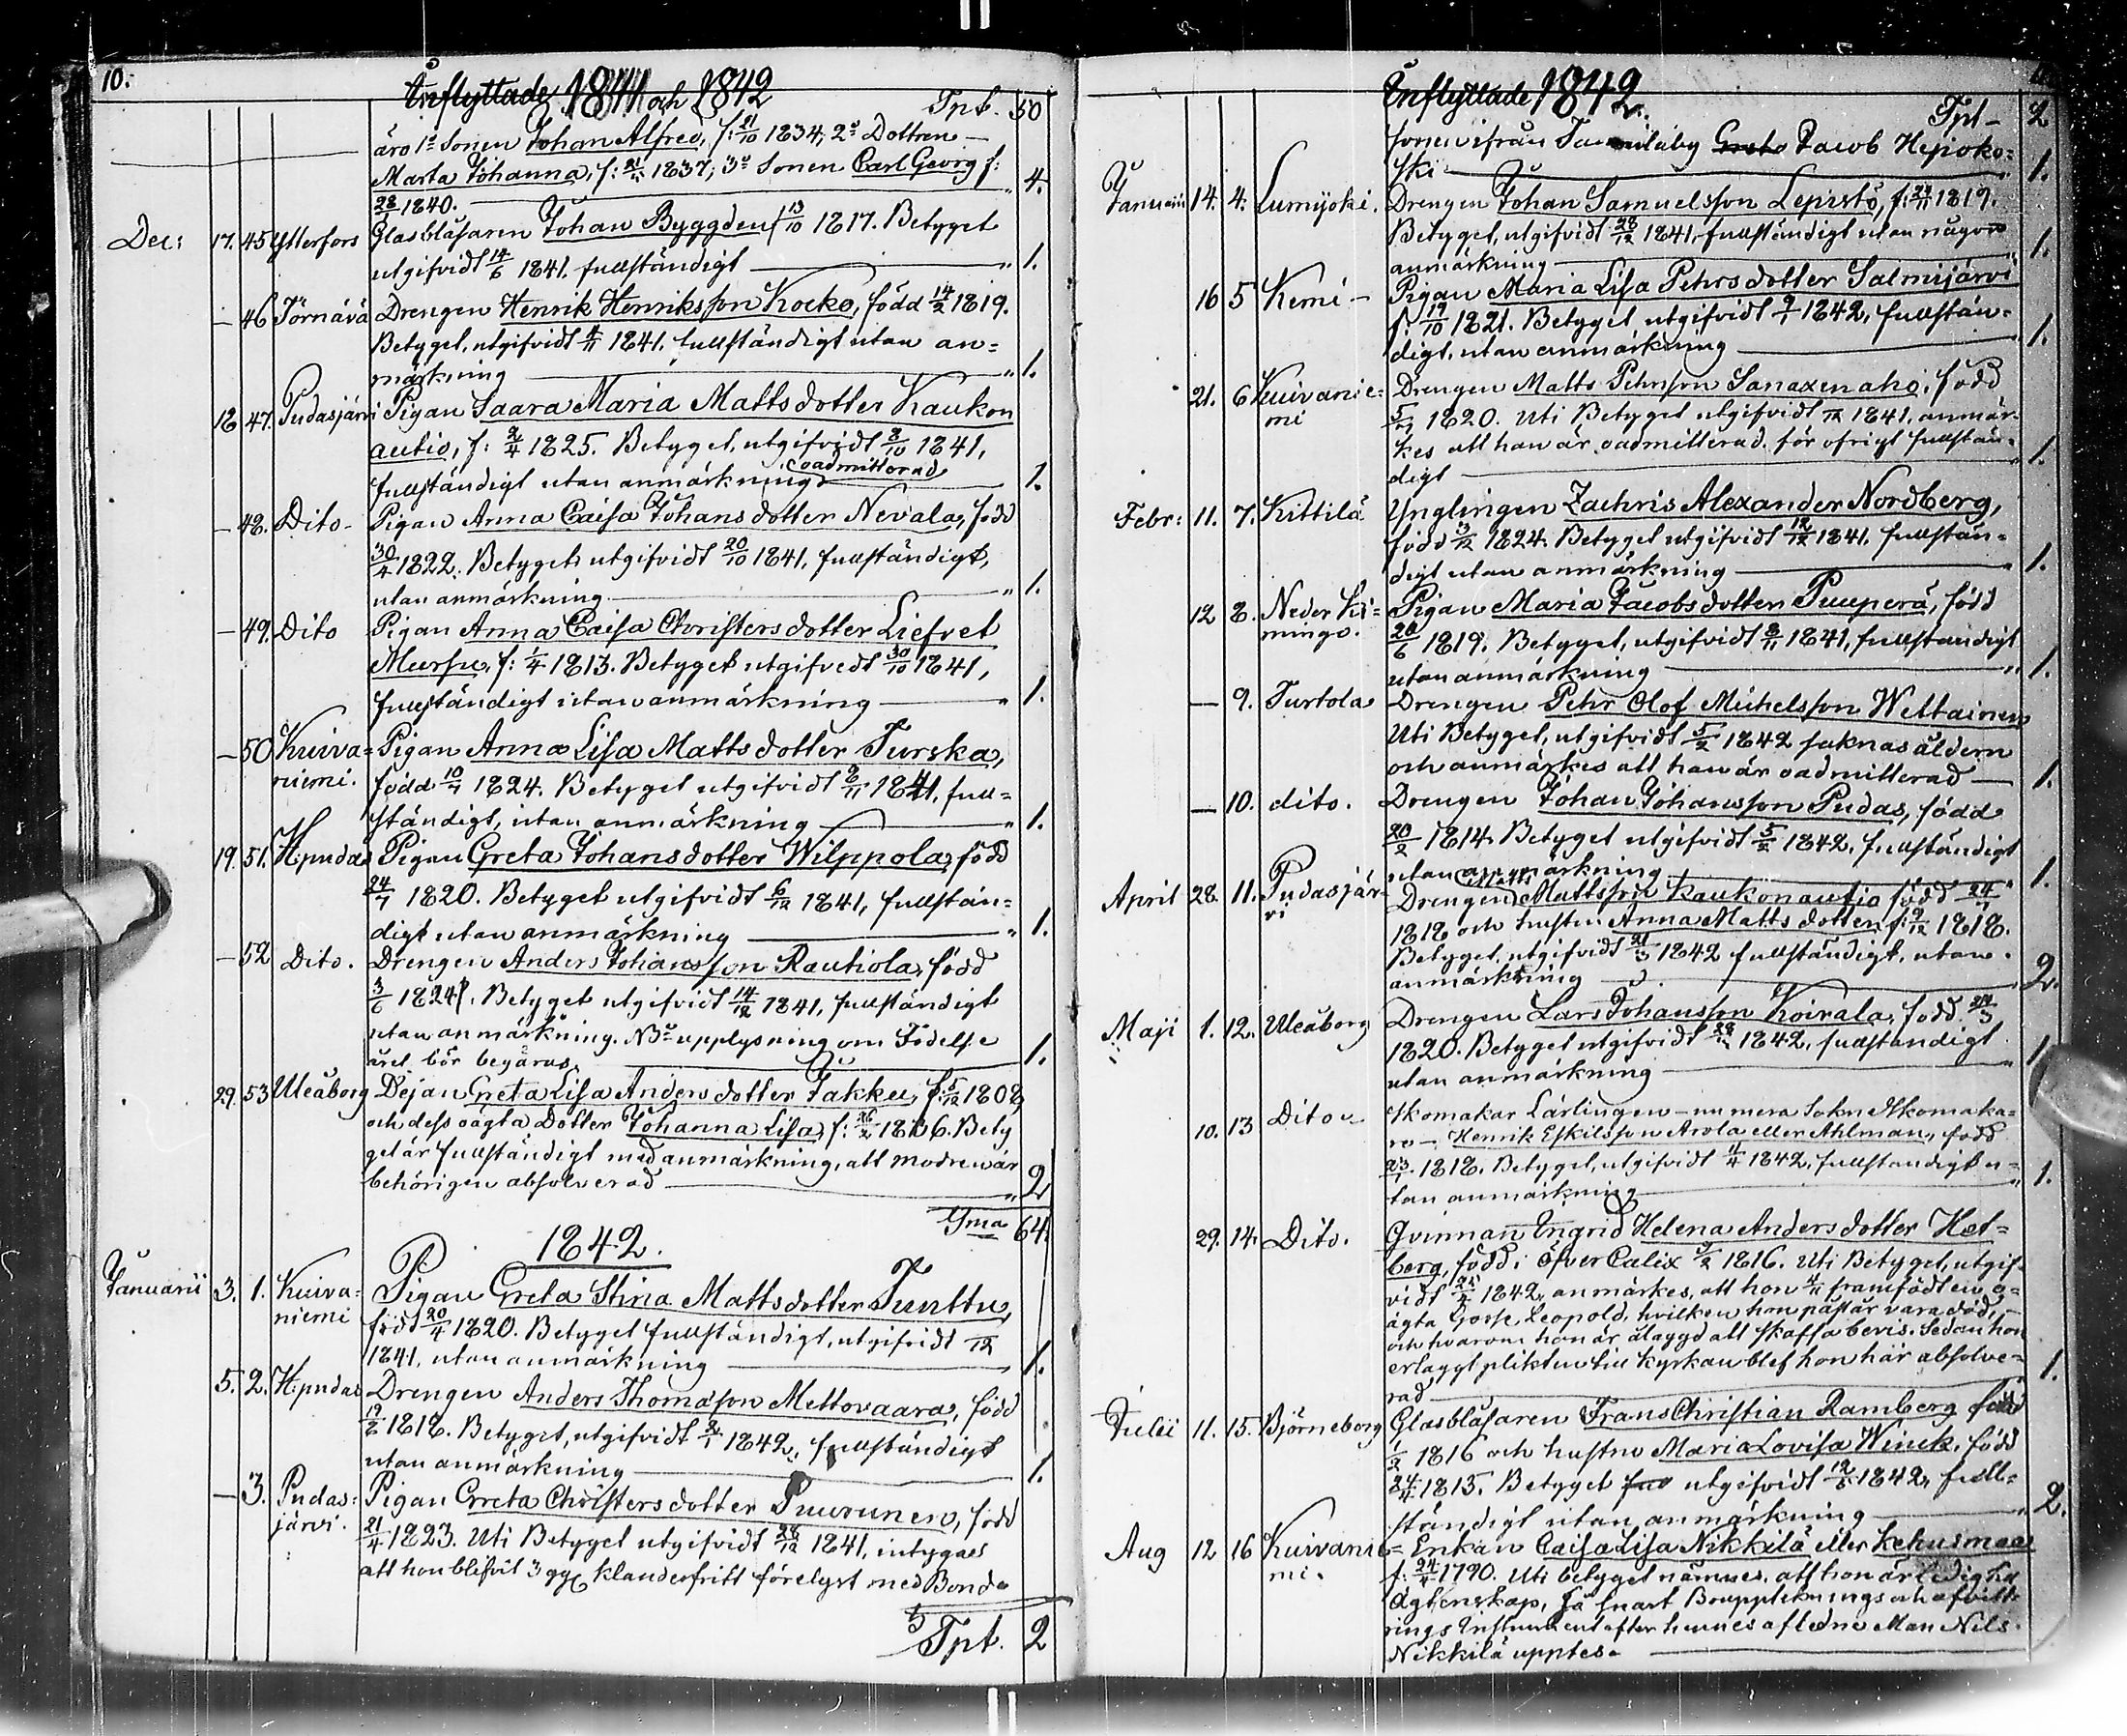 10.
Inflyttade 1841 och 1842
Tpt. 50
äro 1o Sonen Johan Alfred, f: 21/10 1834, 2o Dottren
Marta Johanna, f: 1837; 3o Sonen Carl Georg f:
28/ 1840. 4.
Dec: 17. 45 Ytterfors Glasblåsaren Johan Byggden f 13/10 1817. Betyget
utgifvidt 14/6 1841. fullständigt 1.
— 46 Törnävä Drengen Henrik Henriksson Kocko, född 14/2 1819.
Betyget, utgifvidt 1841. fullständigt utan an=
märkning 1.
18 47. Pudasjärvi Pigan Saara Maria Matts dotter Kaukon
autio, f: 2/4 1825. Betyget, utgifvidt 8/10 1841,
fullständigt utan anmärkning oadmitterad 1.
— 48. Dito Pigan Anna Caisa Johans dotter Nevala, född
30/4 1822. Betyget utgifvidt 20/10 1841, fullständigt,
utan anmärkning 1.
— 49. Dito Pigan Anna Caisa Christers dotter Liefvet
Mursu, f: 1/4 1813. Betyget utgifvedt 30/10 1841,
fullständigt utan anmärkning 1.
— 50 Kuiva= Pigan Anna Lisa Matts dotter Turska,
niemi. född 10/7 1824. Betyget utgifvidt 1841, full=
ständigt, utan anmärkning 1.
19. 51. H:pudas Pigan Greta Johans dotter Wilppola, född
24/7 1820. Betyget utgifvidt 6/12 1841, fullstän=
digt utan anmärkning 1.
— 52 Dito. Drengen Anders Johansson Rautiola, född
3/6 1824. Betyget utgifvidt 14/12 1841, fullständigt
utan anmärkning. NB upplysning om Födelse
året bör begäras. 1.
29. 53 Uleåborg Dejan Greta Lisa Anders dotter Jakku, f: 5/12 1808,
och dess oägta Dotter Johanna Lisa, f: 26/2 1836. Bety
get är fullständigt med anmärkning, att modren är
behörigen absolverad 2
Sma 64.
1842.
Januarii 3. 1. Kuiva= Pigan Greta Stina Matts dotter Tunttu,
niemi född 20/4 1820. Betyget fullständigt, utgifvidt /12
1841, utan anmärkning 1.
5. 2. H:pudas Drengen Anders Thomasson Mettovaara, född
19/6 1818. Betyget, utgifvidt 2/1 1842, fullständigt
utan anmärkning 1.
— 3. Pudas= Pigan Greta Christers dotter Puurunen, född
järvi. 21/4 1823. Uti Betyget utgifvidt 28/12 1841, intygas
att hon blifvit 3 gg klanderfritt förelyst med Bonde
Tpt. 2
Inflyttade 1842.
Tpt 2
sonen ifrån by Jacob Hepoko=
ski 1.
Januarii 14. 4. Lumijoki. Drengen Johan Samuelsson Lepistö, f: 24/11 1819.
Betyget, utgifvidt 28/12 1841, fullständigt utan någon
anmärkning 1.
16 5 Kemi Pigan Maria Lisa Pehrs dotter Salmijärvi
f: 19/10 1821. Betyget, utgifvidt 1842, fullstän=
digt, utan anmärkning 1.
21. 6 Kuivanie= Drengen Matts Pehrsson Sanaxenaho, född
mi 1820. Uti Betyget utgifvidt /12 1841, anmär=
kes att han är oadmitterad. för öfrigt fullstän=
digt 1.
Febr: 11. 7. Kittilä Ynglingen Zachris Alexander Nordberg,
född 3/12 1824. Betyget utgifvidt 12/12 1841. fullstän=
digt utan anmärkning 1.
12 8. Neder Ki= Pigan Maria Jacobs dotter Puuperä, född
mingo. 20/6 1819. Betyget, utgifvidt 1841, fullständigt
utan anmärkning 1.
— 9. Turtola Drengen Pehr Olof Michelsson Weltainen
Uti Betyget, utgifvidt 5/2 1842 saknas åldern
och anmärkes att han är oadmitterad 1.
— 10. dito. Drengen Johan Johansson Pudas, född
20/2 1814. Betyget utgifvidt 5/2 1842. fullständigt
utan anmärkning 1.
April 28. 11. Pudasjär= Drengen Matts Mattsson Kaukonautio född
vi 1818 och hustru Anna Matts dotter f: 9/12 1818.
Betyget, utgifvidt 21/3 1842 fullständigt, utan
anmärkning 2.
Maji 1. 12. Uleåborg Drengen Lars Johansson Koirala, född
1820. Betyget utgifvidt 1842, fullständigt
utan anmärkning 1.
10. 13 Dito Skomakar Lärlingen — nu mera Sokne Skomaka=
re — Henrik Eskilsson Arola eller Ahlman, född
23/1 1818. Betyget, utgifvidt 11/4 1842, fullständigt u=
tan anmärkning 1.
29. 14. Dito. Qvinnan Ingrid Helena Anders dotter Het=
berg, född i öfver Calix 1816. Uti Betyget, utgif=
vidt 1842, anmärkes, att hon framfödt en o=
ägta Gosse Leopold, hvilken hon påstår vara död,
och hvarom hon är ålaggd att skaffa bevis. Sedan hon
erlaggt plikten till kyrkan blef hon här absolve=
rad 1.
Julii 11. 15. Björneborg Glasblåsaren Frans Christian Ramberg född
1/2 1816 och hustru Maria Lovisa Winck, född
24/4 1813. Betyget utgifvidt 12/6 1842, full=
ständigt utan anmärkning 2.
Aug 12 16 Kuivanie= Enkan Caisa Lisa Nikkilä eller Kehusmaa
mi. f: 24/4 1790. Uti betyget nämnes, att hon är ledig till
Ägtenskap, så snart Bouppteknings och afvitt=
rings Instrument efter hennes aflidne Man Nils
Nikkilä upptes.